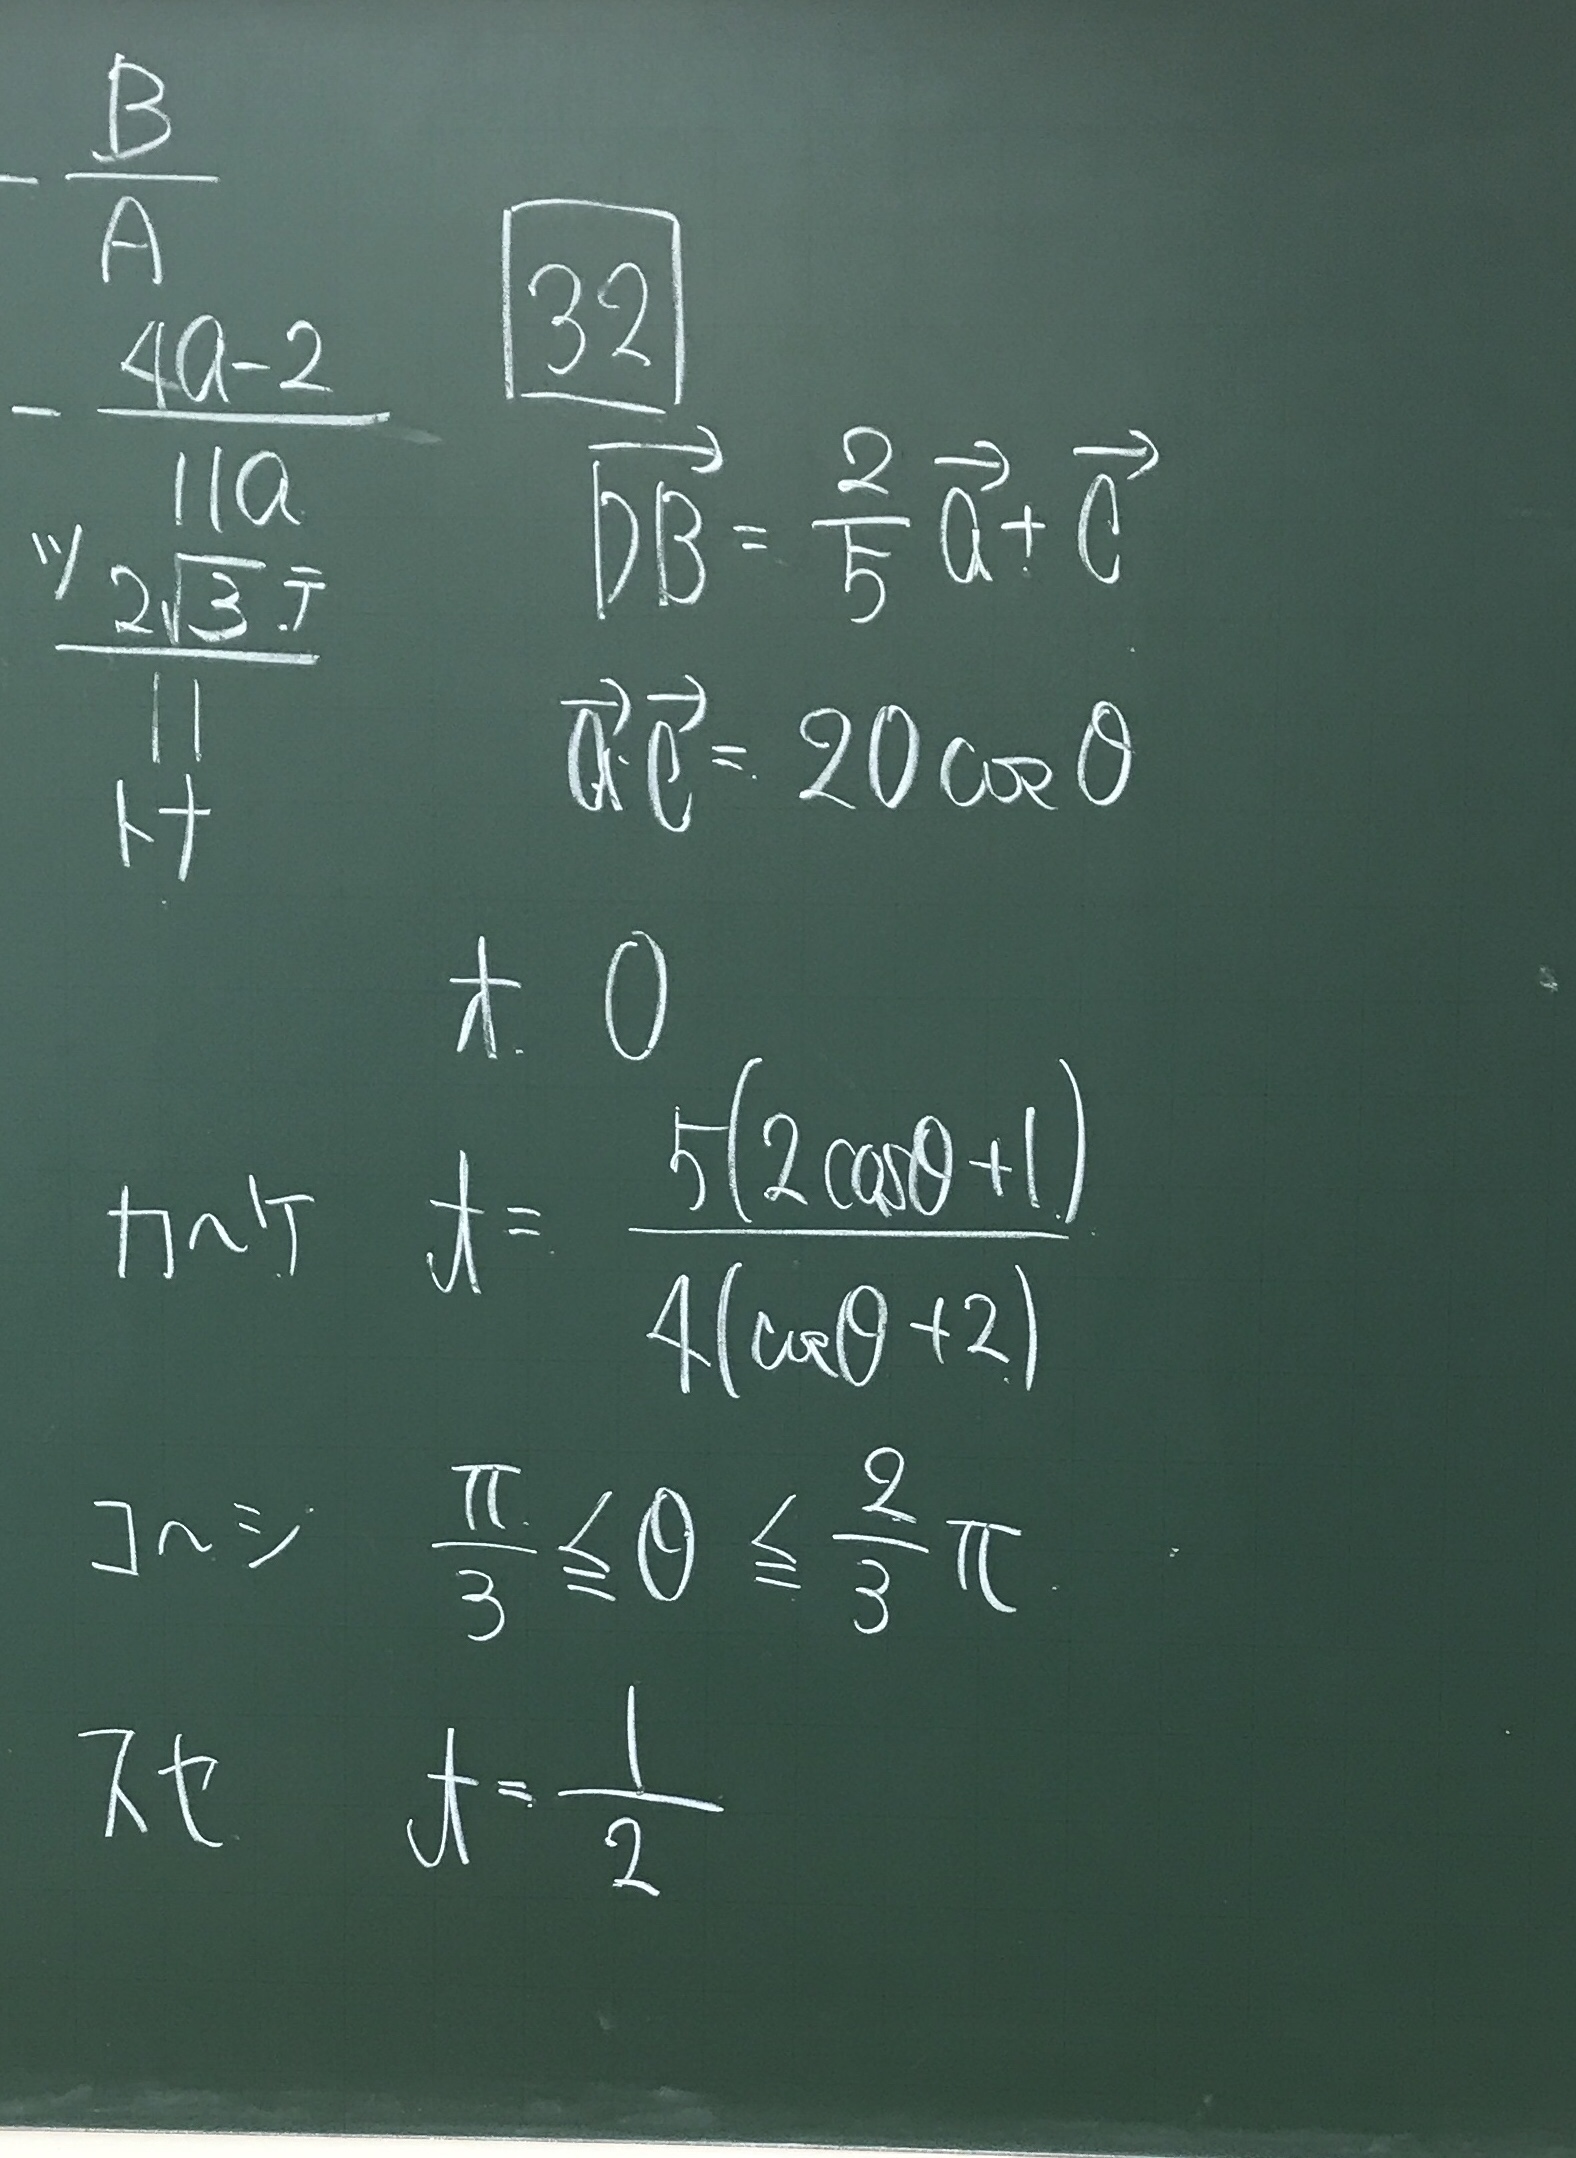 - B/A
- (4a-2)/(11a)
ツ 2√3 テ
11
トナ
32
→DB = 2/5 →a + →c
→a・→c = 20 cosθ
オ 0
カ〜ケ t = 5(2cosθ+1) / 4(cosθ+2)
コ〜シ π/3 ≦ θ ≦ 2/3 π
スセ t = 1/2